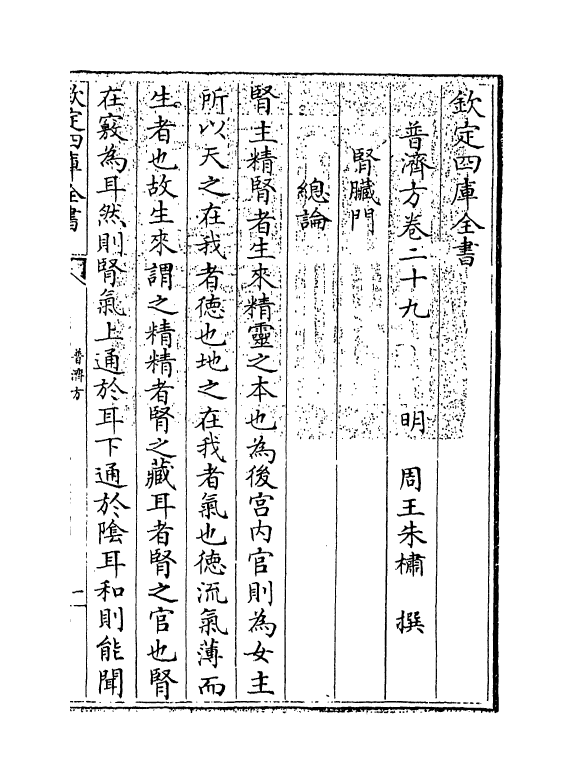 欽定四庫全書
普濟方卷二十九　明　周王朱橚　撰
腎臟門
總論
腎主精腎者生來精靈之本也為後宫内官則為女主
所以天之在我者徳也地之在我者氣也徳流氣薄而
生者也故生來謂之精精者腎之藏耳者腎之官也腎
在竅為耳然則腎氣上通於耳下通於陰耳和則能聞
欽定四庫全書
普濟方
一